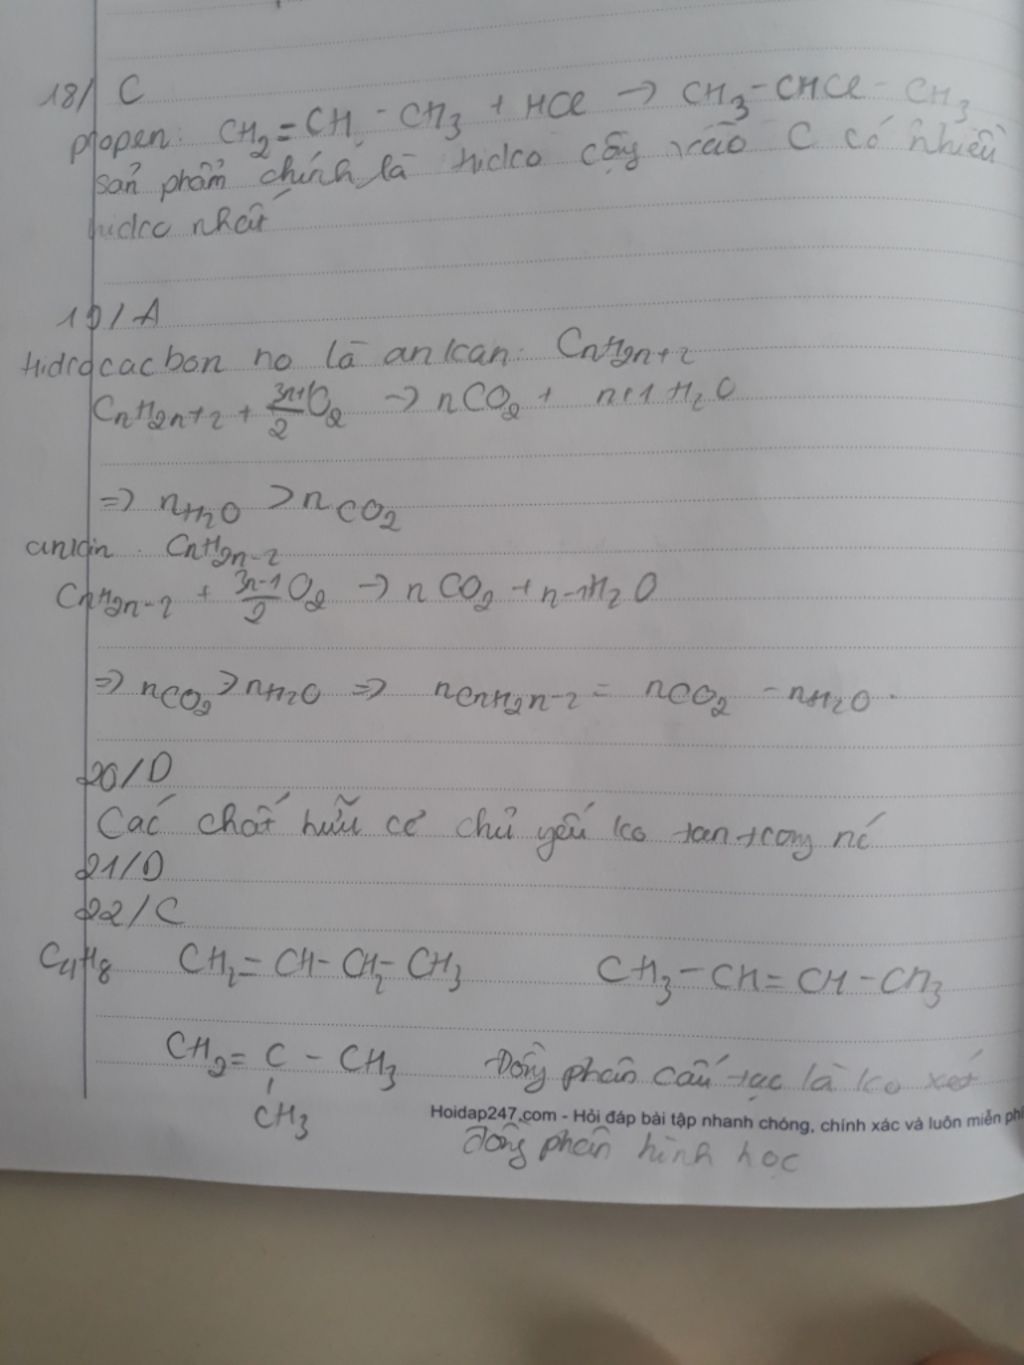 18/ C
propen: CH2=CH-CH3 + HCl → CH3-CHCl-CH3
sản phẩm chính là Hidro cộng vào C có nhiều
hidro nhất
19/A
Hidrocacbon no là ankan: CnH2n+2
CnH2n+2 + 3n+1/2 O2 → nCO2 + n+1 H2O
=> nH2O > nCO2
ankin CnH2n-2
CnH2n-2 + 3n-1/2 O2 → nCO2 + n-1H2O
=> nCO2 > nH2O => nCnH2n-2 = nCO2 - nH2O.
20/D
Các chất hữu cơ chủ yếu ko tan trong nc
21/D
22/C
C4H8 CH2=CH-CH2-CH3 CH3-CH=CH-CH3
CH2=C-CH3 Đồng phân cấu tạc là ko xét
CH3
Hoidap247.com - Hỏi đáp bài tập nhanh chóng, chính xác và luôn miễn phí
đồng phân hình học